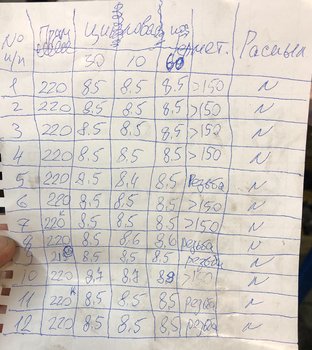 No п/п Цикловая Гермет. Распыл
30 10 60
1 220 8.5 8.5 8.5 >150 N
2 220 8.5 8.5 8.5 >150 N
3 220 8.5 8.5 8.5 >150 N
4 220 8.5 8.5 8.5 >150 N
5 220 8.5 8.4 8.5 резьба N
6 220 8.5 8.5 8.5 >150 N
7 220 8.5 8.5 8.5 >150 N
220 8.5 8.6 8.6 резьба N
8.5 8.5 8.5 резьба N
10 220 8.7 8.7 >150 N
11 220 8.5 8.5 8.5 резьба N
12 220 8.5 8.5 8.5 резьба N